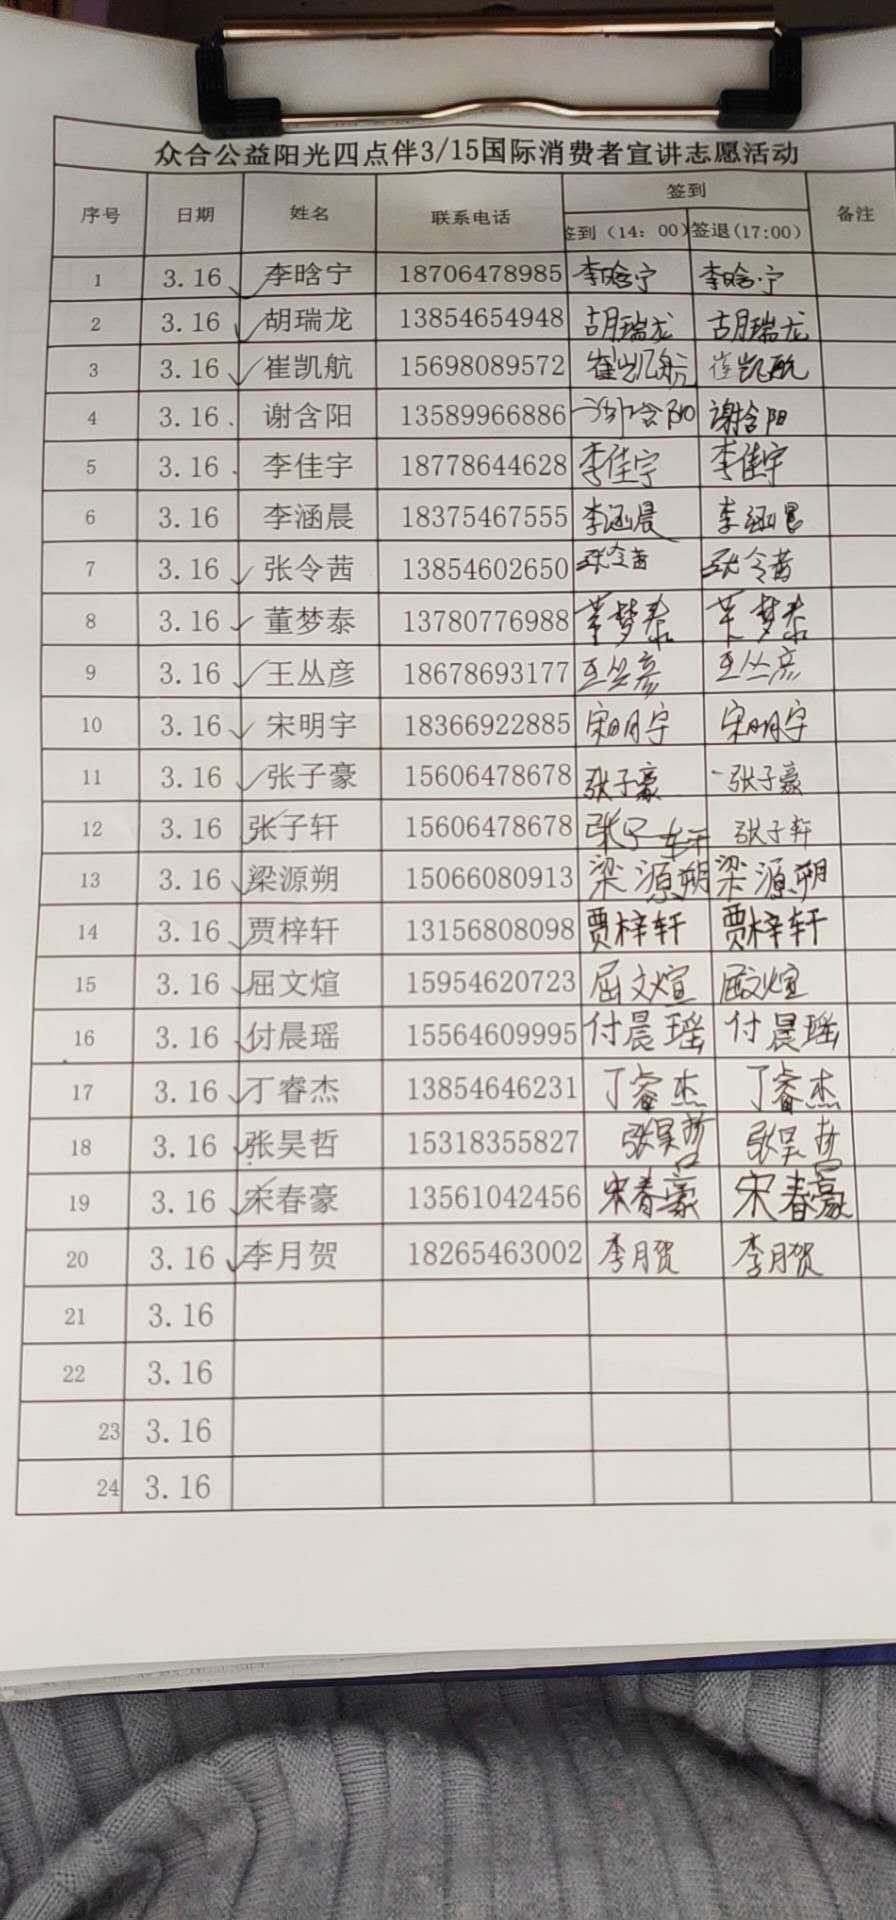 众合公益阳光四点伴3/15国际消费者宣讲志愿活动
序号 日期 姓名 联系电话 签到 备注
签到（14：00） 签退(17:00)
1 3.16 李晗宁 18706478985 李晗宁 李晗宁
2 3.16 胡瑞龙 13854654948 胡瑞龙 胡瑞龙
3 3.16 崔凯航 15698089572 崔凯航 崔凯航
4 3.16 谢含阳 13589966886 谢含阳 谢含阳
5 3.16 李佳宇 18778644628 李佳宇 李佳宇
6 3.16 李涵晨 18375467555 李涵晨 李涵晨
7 3.16 张令茜 13854602650 张令茜 张令茜
8 3.16 董梦泰 13780776988 董梦泰 董梦泰
9 3.16 王丛彦 18678693177 王丛彦 王丛彦
10 3.16 宋明宇 18366922885 宋明宇 宋明宇
11 3.16 张子豪 15606478678 张子豪 张子豪
12 3.16 张子轩 15606478678 张子轩 张子轩
13 3.16 梁源朔 15066080913 梁源朔 梁源朔
14 3.16 贾梓轩 13156808098 贾梓轩 贾梓轩
15 3.16 屈文煊 15954620723 屈文煊 屈文煊
16 3.16 付晨瑶 15564609995 付晨瑶 付晨瑶
17 3.16 丁睿杰 13854646231 丁睿杰 丁睿杰
18 3.16 张昊哲 15318355827 张昊哲 张昊哲
19 3.16 宋春豪 13561042456 宋春豪 宋春豪
20 3.16 李月贺 18265463002 李月贺 李月贺
21 3.16
22 3.16
23 3.16
24 3.16